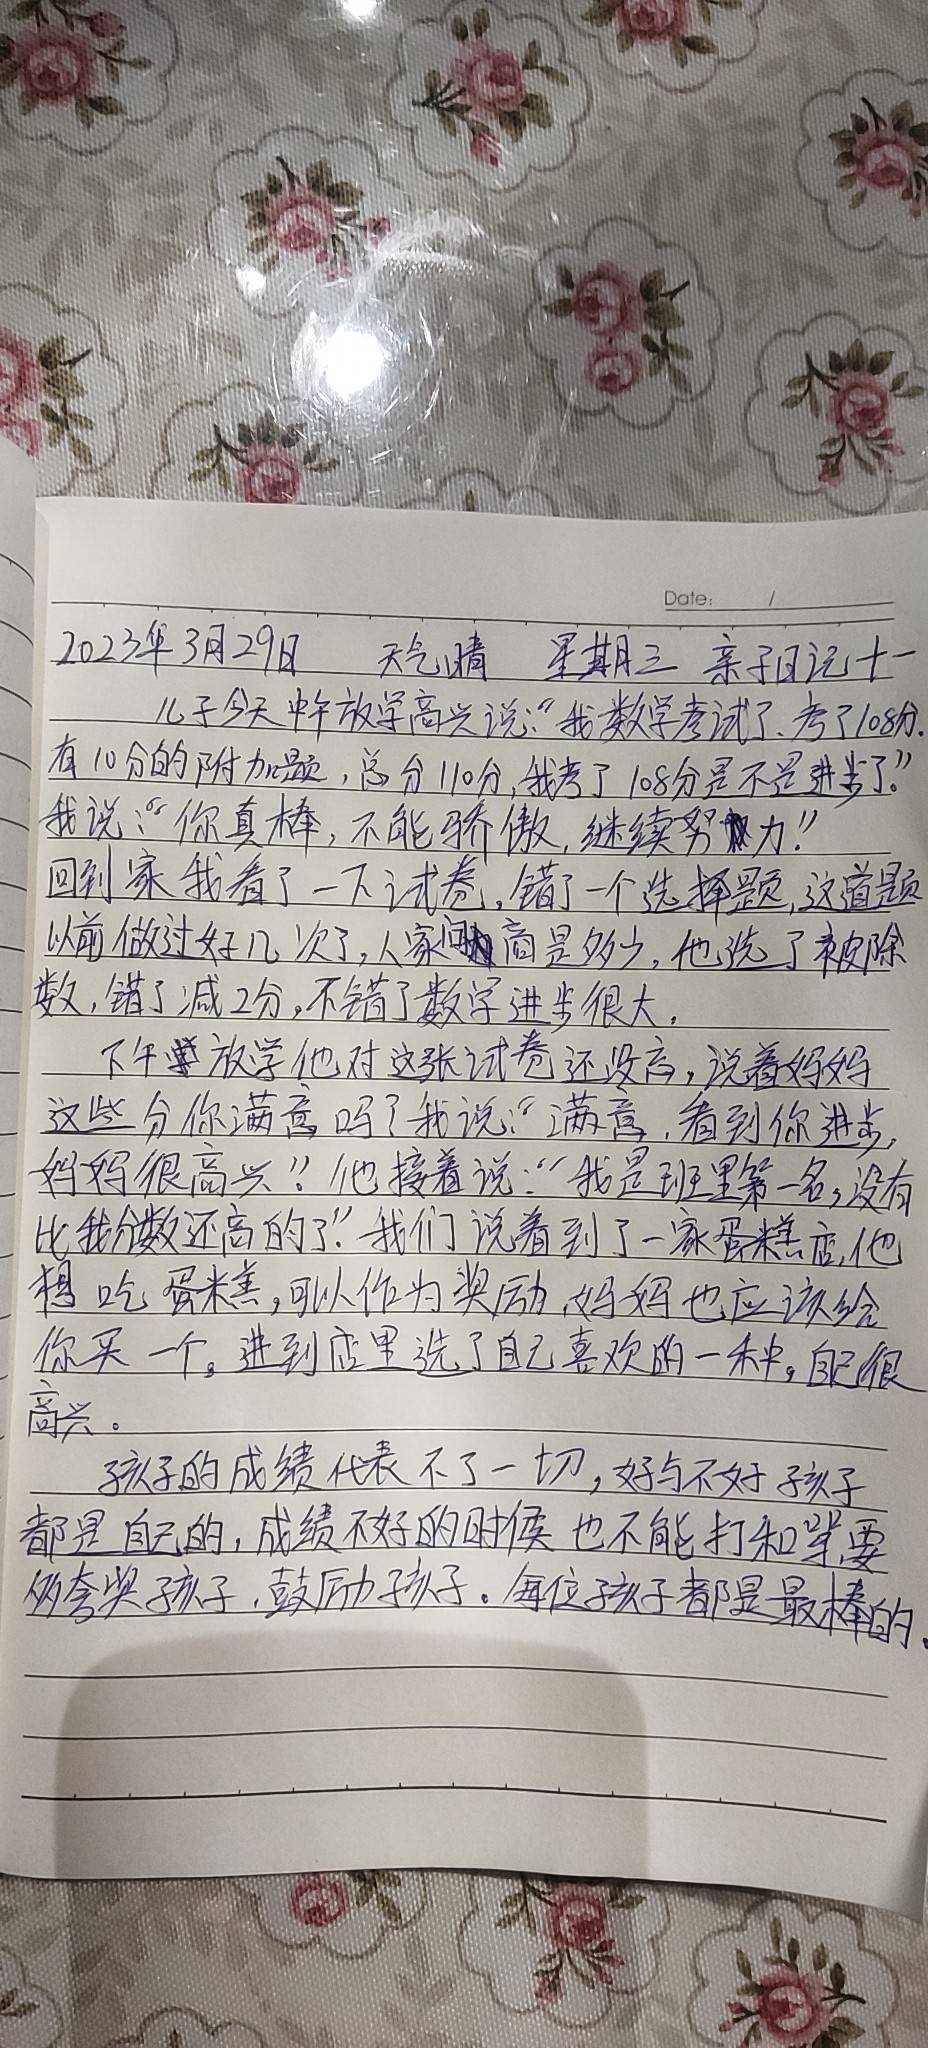 Date: /
2023年3月29日 天气晴 星期三 亲子日记十一
儿子今天中午放学高兴说:“我数学考试了、考了108分.
有10分的附加题,总分110分,我考了108分是不是进步了。”
我说:“你真棒,不能骄傲,继续努力!”
回到家我看了一下试卷,错了一个选择题,这道题
以前做过好几次了,人家问商是多少,他选了被除
数,错了减2分,不错了数学进步很大.
下午放学他对这张试卷还没完,说着妈妈
这些分你满意吗了我说:“满意,看到你进步,
妈妈很高兴”!他接着说:“我是班里第一名,没有
比我分数还高的了”.我们说着到了一家蛋糕店,他
想吃蛋糕,可以作为奖励,妈妈也应该给
你买一个。进到店里选了自己喜欢的一种。自己很
高兴。
孩子的成绩代表不了一切,好与不好孩子
都是自己的,成绩不好的时候也不能打和骂,要
夸奖孩子,鼓励孩子。每位孩子都是最棒的.